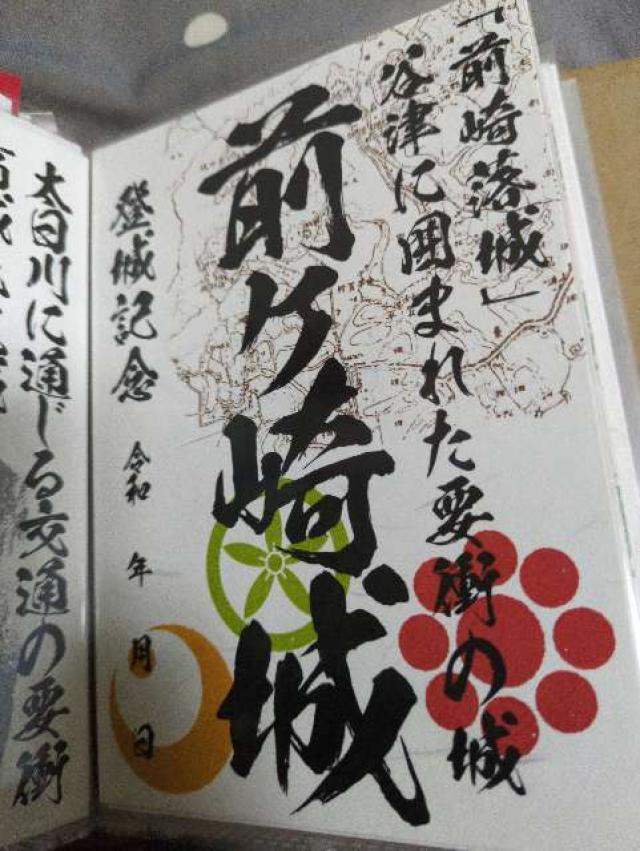 「前崎落城」
谷津に囲まれた要衝の城
前ヶ崎城
登城記念
令和 年 月 日
太日川に通じる交通の要衝